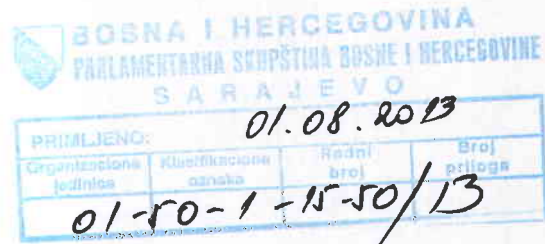 BOSNA I HERCEGOVINA
PARLAMENTARNA SKUPŠTINA BOSNE I HERCEGOVINE
SARAJEVO
PRIMLJENO: 01.08.2013
Organizaciona jedinica Klasifikaciona oznaka Redni broj Broj priloga
01-50-1-15-50/13